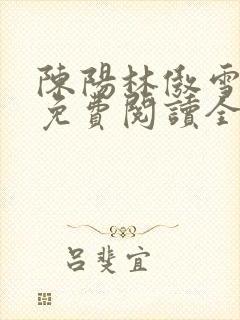 陳陽林傲雪
免費閱讀全
呂斐宜